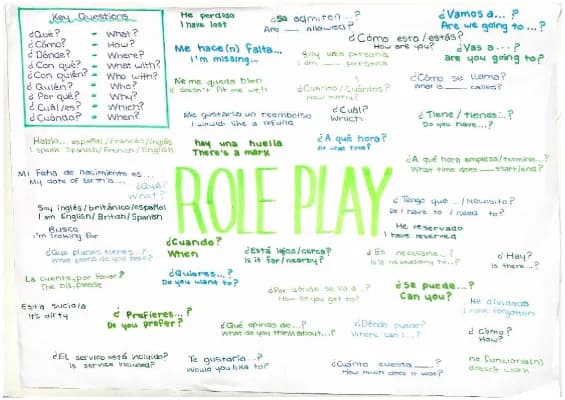 Key Questions
¿Qué? - What?
¿Cómo? - How?
¿Dónde? - Where?
¿Con qué? - What with?
¿Con quién? - Who with?
¿Quién? - Who?
¿Por qué? - Why?
¿Cuál/es? - Which?
¿Cuándo? - When?
He perdido
I have lost
¿Se admiten...?
Are ___ allowed?
¿Vamos a...?
Are we going to ...?
Me hace(n) falta...
I'm missing...
Soy una persona
I am ___ persona
¿Cómo esta/estás?
How are you?
¿Vas a...?
are you going to?
No me queda bien
It doesn't fit me well
¿Cuánto/Cuántos?
How many?
¿Cómo se llama?
What is ___ called?
Me gustaría un reembolso
I would like a refund
¿Cuál?
Which
¿Tiene/tienes...?
Do you have...?
Hablo... español/francés/inglés
I speak Spanish/French/English
hay una huella
There's a mark
¿A qué hora?
At what time?
¿A qué hora empieza/termina...?
What time does ___ start/end?
Mi fecha de nacimiento es...
My date of birth is...
¿Qué?
What?
ROLE PLAY
Soy inglés/británico/español
I am English/British/Spanish
¿Tengo que .../Necesito?
Do I have to / need to?
Busco
I'm looking for
He reservado
I have reserved
¿Qué planes tienes...?
What plans do you have?
¿Cuando?
When
¿Está lejos/cerca?
Is it far/nearby?
¿Es necesario...?
Is it necessary to...?
¿Hay?
Is there...?
La cuenta, por favor
The bill, please
¿Quieres...?
Do you want to?
¿Por dónde se va a...?
How do you get to?
¿Se puede...?
Can you?
He olvidado
I have forgotten
Esta sucio/a
It's dirty
¿Prefieres...?
Do you prefer?
¿Qué opinas de...?
What do you think about...?
¿Dónde puedo?
Where can I...?
¿Cómo?
How?
¿El servicio está incluido?
Is service included?
Te gustaría...?
Would you like to?
¿Cuánto cuesta ___?
How much does it
no funciona(n)
doesn't work